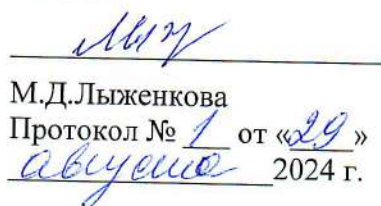 М.Д.Лыженкова
Протокол № 1 от «29»
августа 2024 г.